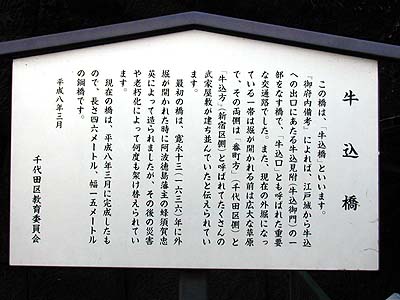 牛込橋
この橋は、「牛込橋」といいます。
『御府内備考』によれば、江戸城から牛込
への出口にあたる牛込見附（牛込御門）の一
部をなす橋で、「牛込口」とも呼ばれた重要
な交通路でした。また、現在の外堀になっ
ている一帯は堀が開かれる前は広大な草原
で、その両側は「番町方」（千代田区側）と
「牛込方」（新宿区側）と呼ばれてたくさんの
武家屋敷が建ち並んでいたと伝えられてい
ます。
最初の橋は、寛永十三（一六三六）年に外
堀が開かれた時に阿波徳島藩主の蜂須賀忠
英によって造られましたが、その後の災害
や老朽化によって何度も架け替えられてい
ます。
現在の橋は、平成八年三月に完成したも
ので、長さ四六メートル、幅一五メートル
の鋼橋です。
平成八年三月
千代田区教育委員会